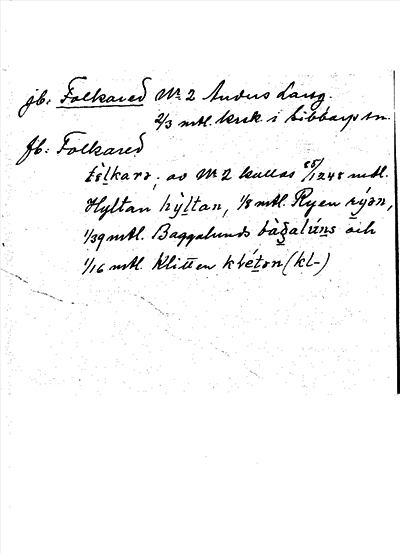 jb: Folkared № 2 Anders Larsg.
2/3 mtl. krsk i Libbarps sn.
fb: Folkared
fòlkarə, av № 2 kallas 85/1248 mtl.
Hyltan hỳltan, 1/8 mtl. Ryen rýən,
1/39 mtl. Baggalunds bàgalúns och
1/16 mtl. Klitten kléten (kl-)